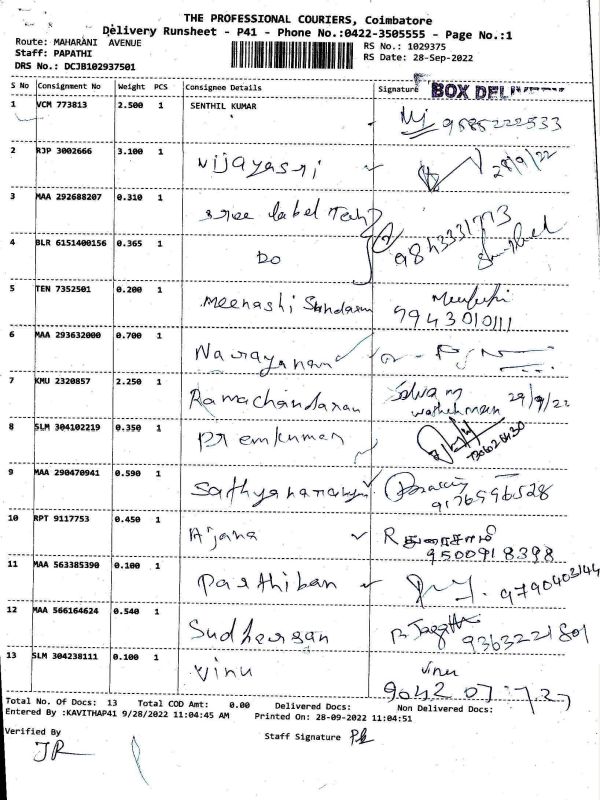 THE PROFESSIONAL COURIERS, Coimbatore
Delivery Runsheet - P41 - Phone No.:0422-3505555 - Page No.:1
Route: MAHARANI AVENUE
RS No.: 1029375
Staff: PAPATHI
RS Date: 28-Sep-2022
DRS No.: DCJB102937501
S No Consignment No Weight PCS Consignee Details Signature BOX DELIVERY
1 VCM 773813 2.500 1 SENTHIL KUMAR 9585222533
2 RJP 3002666 3.100 1 Vijayasri 28/9/22
3 MAA 292688207 0.310 1 Sree label Tech 9843331773
4 BLR 6151400156 0.365 1 DO
5 TEN 7352501 0.200 1 Meenashi Sundaram
9943010111
6 MAA 293632000 0.700 1 Narayanan
7 KMU 2320857 2.250 1 Ramachandaran Selvam
watchman 29/9/22
8 SLM 304102219 0.350 1 Premkumar
9 MAA 290470941 0.590 1 Sathyanarayan
9176596528
10 RPT 9117753 0.450 1 Arjana R துரைசாமி
9500918398
11 MAA 563385390 0.100 1 Parthiban 9790403144
12 MAA 566164624 0.540 1 Sudhersan
9363221801
13 SLM 304238111 0.100 1 Vinu Vinu
9042 07
Total No. Of Docs: 13 Total COD Amt: 0.00 Delivered Docs: Non Delivered Docs:
Entered By :KAVITHAP41 9/28/2022 11:04:45 AM Printed On: 28-09-2022 11:04:51
Verified By
Staff Signature
JR